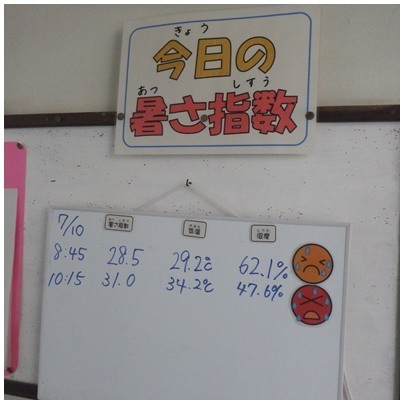 きょう
今日の
あつ しすう
暑さ指数
7/10 暑さ指数 気温 湿度
8:45 28.5 29.2℃ 62.1%
10:15 31.0 34.2℃ 47.6%